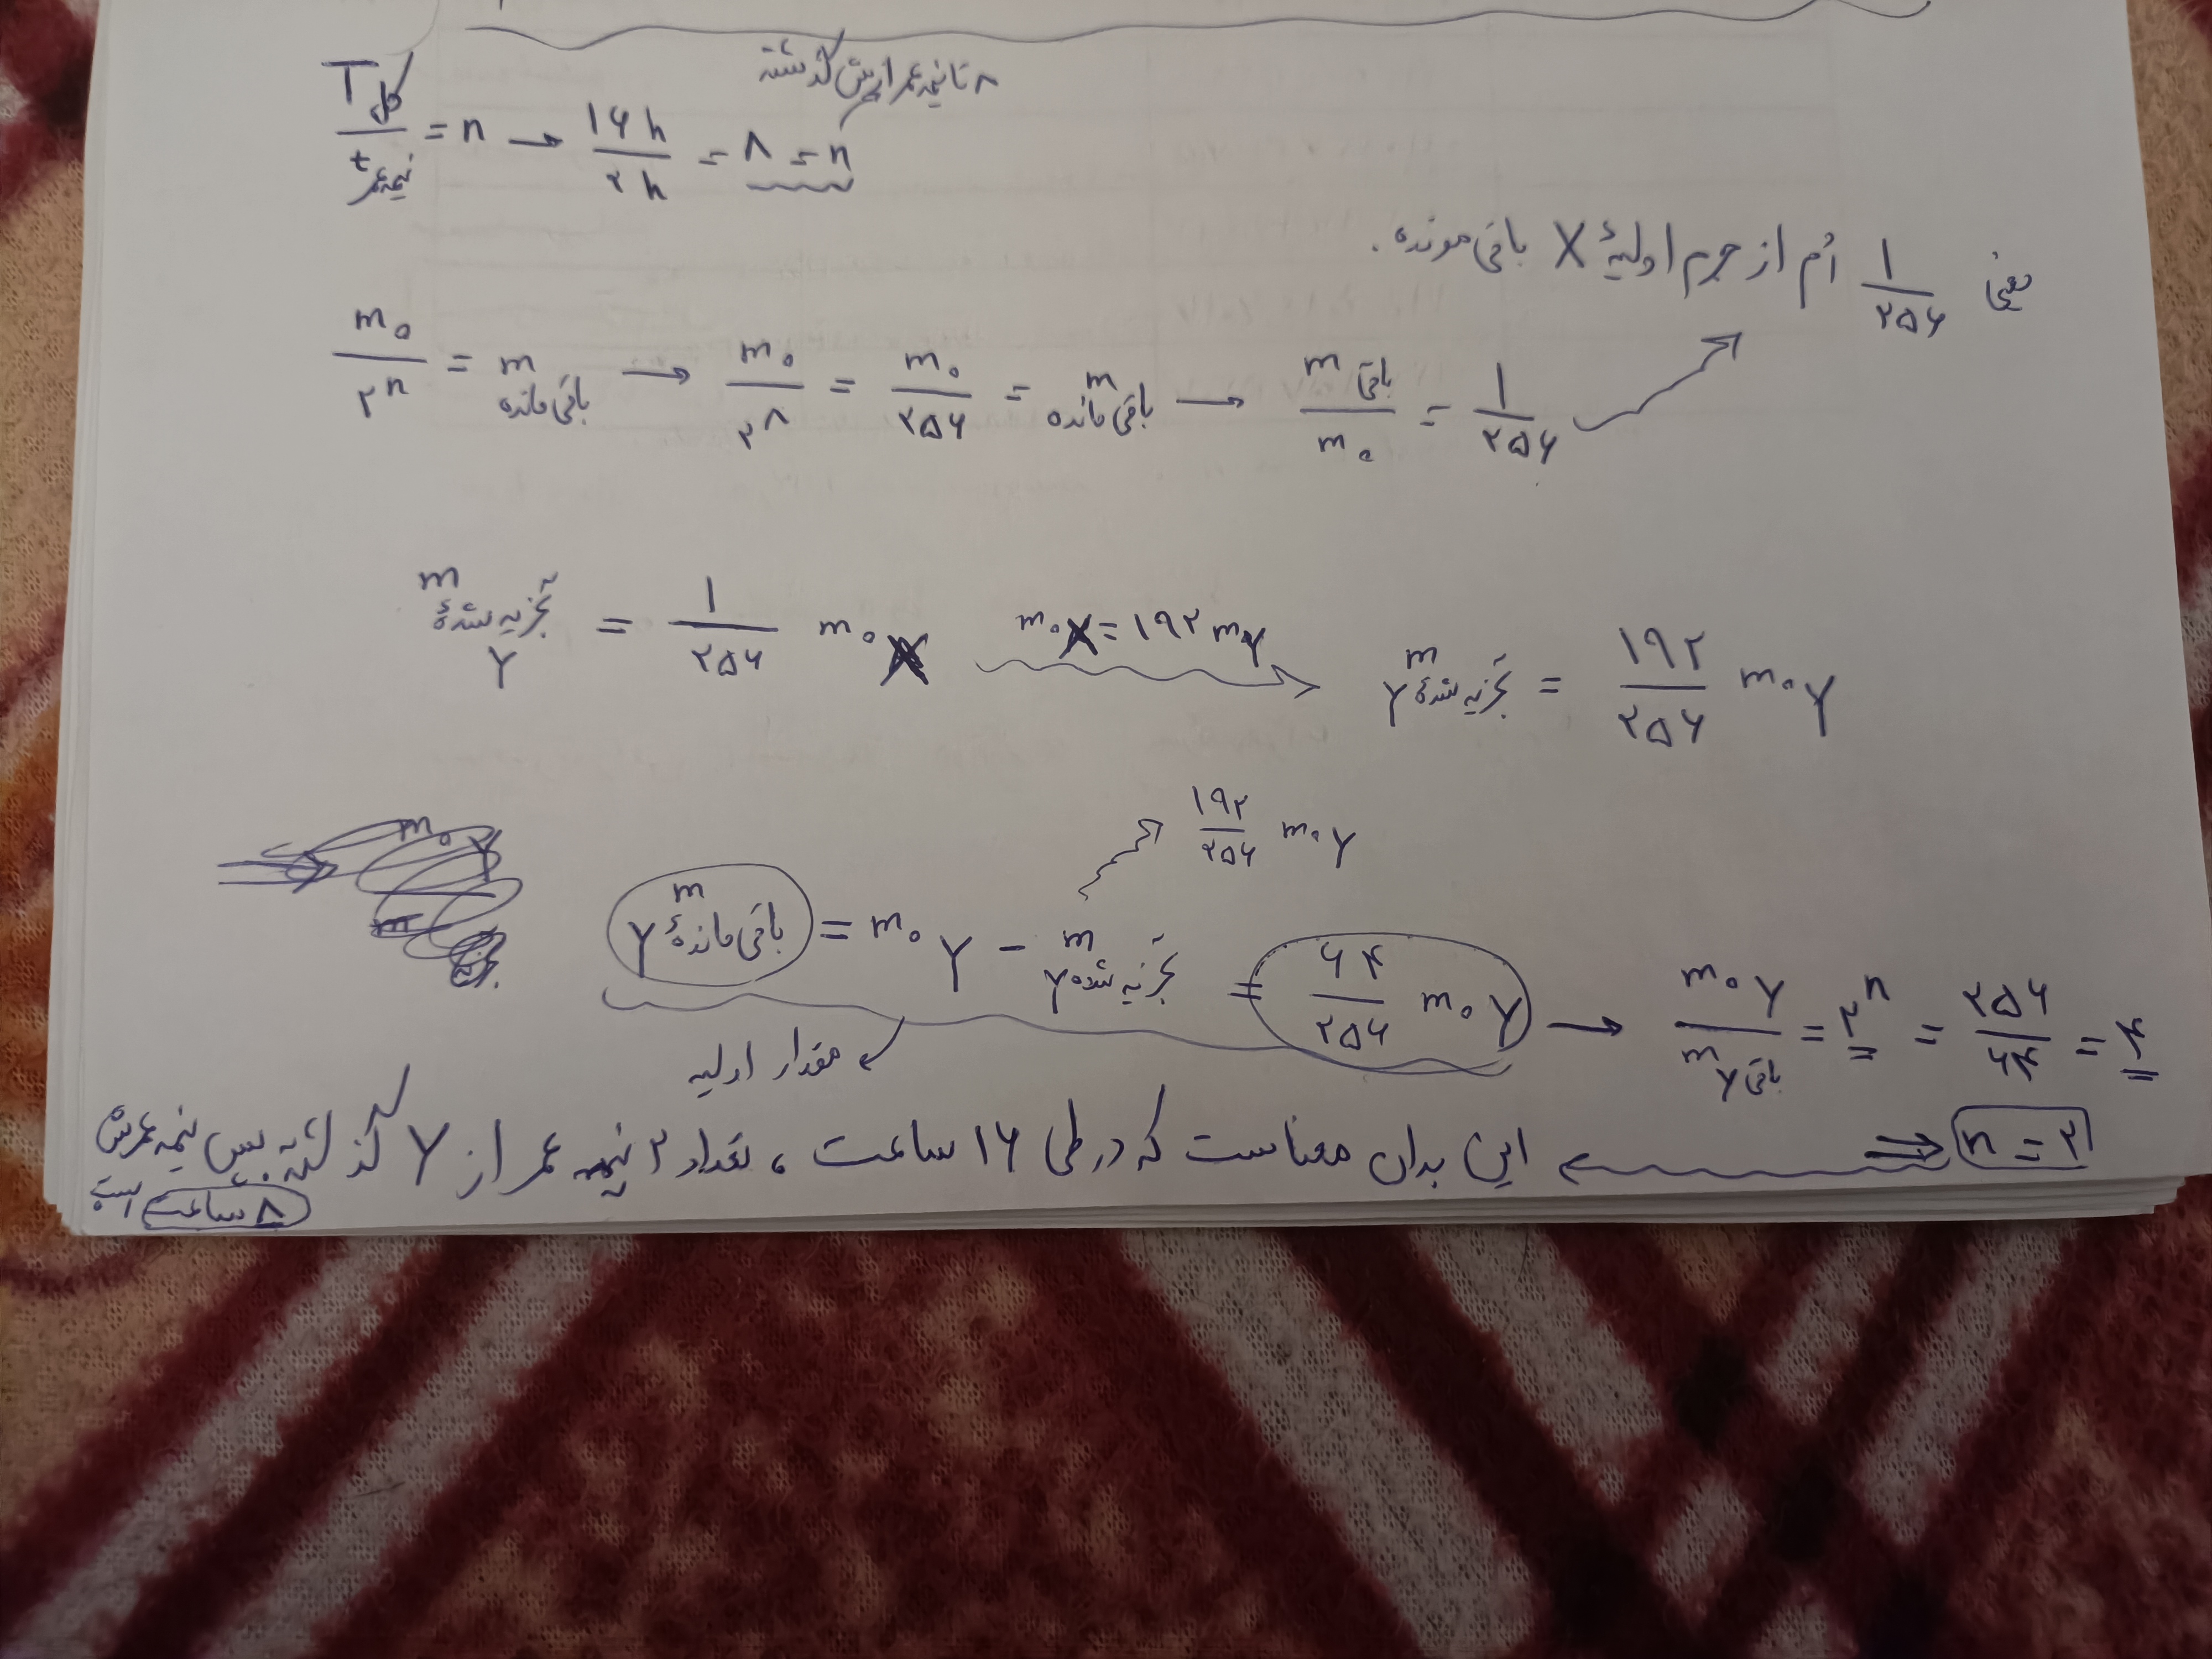 ۸ تا نیمه عمر ازش گذشته
T کل / t نیمه‌عمر = n → ۱۶ h / ۲ h = ۸ = n
یعنی ۱/۲۵۶ اُم از جرم اولیهٔ X باقی مونده.
m₀ / ۲ⁿ = m باقی‌مانده → m₀ / ۲^۸ = m₀ / ۲۵۶ = m باقی‌مانده → m باقی / m₀ = ۱ / ۲۵۶
m تجزیه شدهٔ Y = ۱/۲۵۶ m₀X m₀X = ۱۹۲ mY m تجزیه شدهٔ Y = ۱۹۲/۲۵۶ m₀Y
۱۹۲/۲۵۶ m₀Y
m باقی‌ماندهٔ Y = m₀Y − m تجزیه شده Y = ۶۴/۲۵۶ m₀Y → m₀Y / m باقی Y = ۲ⁿ = ۲۵۶/۶۴ = ۴
مقدار اولیه
⇒ n = ۲
این بدان معناست که در طی ۱۶ ساعت، تعداد ۲ نیمه عمر از Y گذشته. پس نیمه عمرش
۸ ساعت است